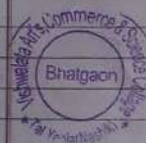 Vishwalata Arts, Commerce & Science College
Bhatgaon
Tal. Yeola (Nashik)